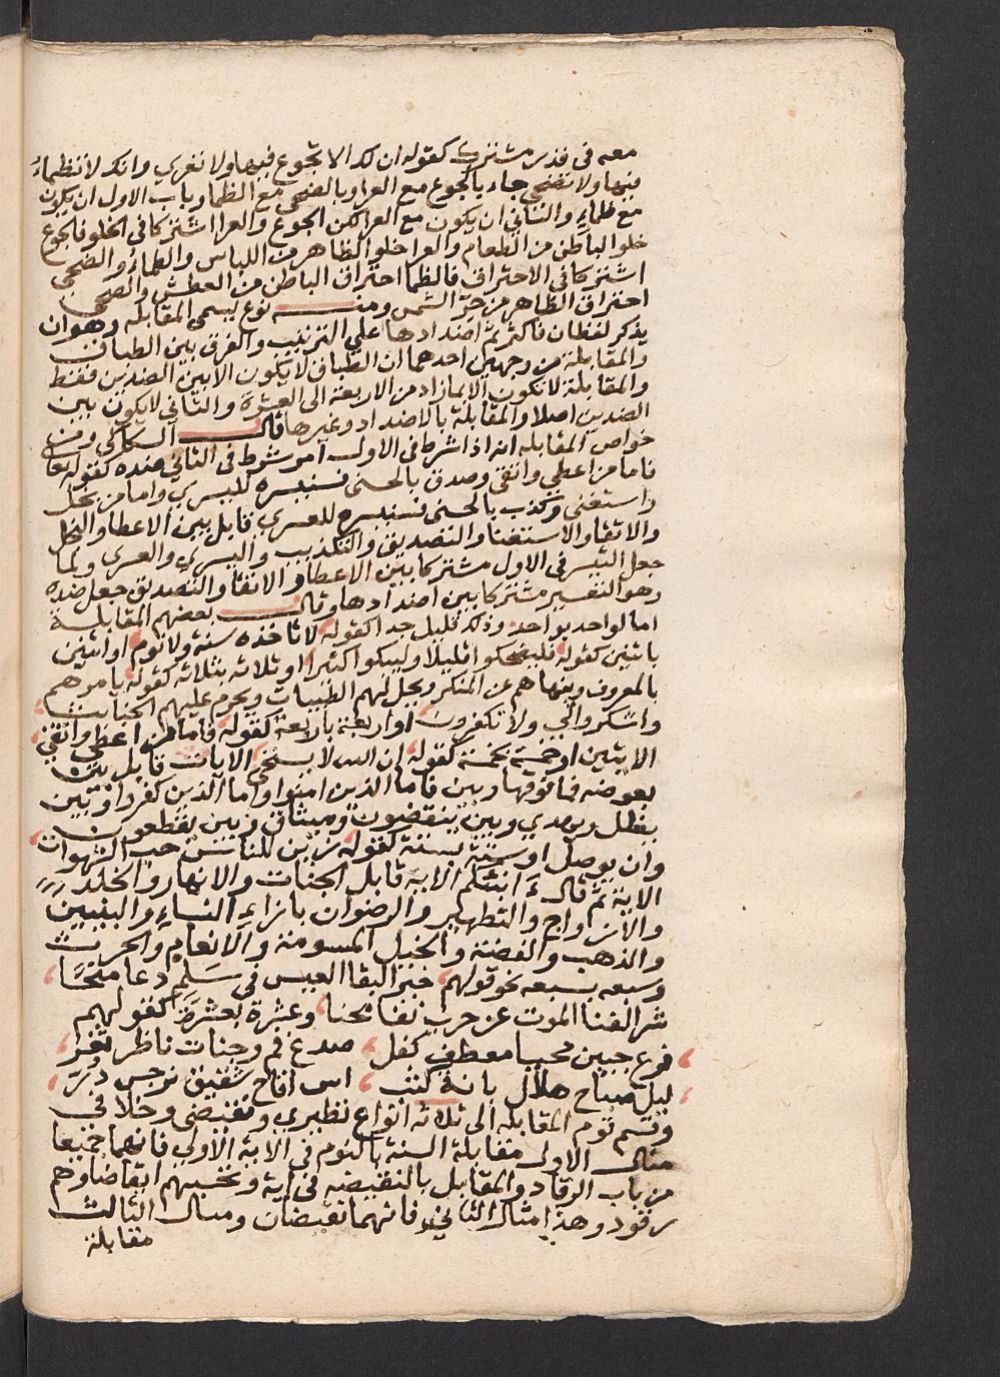 معه في قدر مشترك كقوله ان لك الا تجوع فيها ولا تعري وانك لا تظماء
فيها ولا تضحي جاء بالجوع مع العرا وبالضحي مع الظما وباب الاول ان يكون
مع ظماء والثاني ان يكون مع العرا لكن الجوع والعرا اشتركا في الخلو فالجوع
خلو الباطن من الطعام والعرا خلو الظاهر من اللباس والظماء والضحي
اشتركا في الاحتراق فالظما احتراق الباطن من العطش والضحي
احتراق الظاهر من حر الشمس ومنه نوع يسمي المقابله وهو ان
يذكر لفظان فاكثر ثم اضدادها علي الترتيب والفرق بين الطباق
والمقابلة من وجهين احدهما ان الطباق لا يكون الا بين الضدين فقط
والمقابلة لا تكون الا بما زاد من الاربعة الي العشرة والثاني لا يكون بين
الضدين اصلا والمقابلة بالاضداد وغيرها قال السكاكي ومن
خواص المقابله انه اذا شرط في الاول امر شرط في الثاني ضده كقوله تعالي
فاما من اعطي واتقي وصدق بالحسني فسنيسره لليسري واما من بخل
واستغني وكذب بالحسني فسنيسره للعسري قابل بين الاعطا والبخل
والاتقا والاستغنا والتصديق والتكذيب واليسري والعسري ولما
جعل التيسر في الاول مشتركا بين الاعطا والاتقا والتصديق جعل ضده
وهو التعسير مشتركا بين اضدادها وقال بعضهم المقابلة
اما لواحد بواحد وذلك قليل جدا كقوله لا تاخذه سنة ولا نوم او اثنين
باثنين كقوله فليضحكوا قليلا وليبكوا كثيرا او ثلاثه بثلاثه كقوله يامرهم
بالمعروف وينهاهم عن المنكر ويحل لهم الطيبات ويحرم عليهم الخبايث
واشكروا لي ولا تكفرون او اربعة باربعة كقوله فاما من اعطي واتقي
الايتين او خمسة بخمسة كقوله ان الله لا يستحي الايات قابل بين
بعوضه فما فوقها وبين فاما الذين امنوا واما الذين كفروا وبين
يضل ويهدي وبين ينقضون وميثاق وبين يقطعون
وان يوصل او ستة بستة كقوله زين للناس حب الشهوات
الاية ثم قال انبئكم الايه قابل الجنات والانهار والخلد
والازواج والتطهير والرضوان بازاء النساء والبنين
والذهب والفضة والخيل المسومة والانعام والحرث
وسبعه بسبعه نحو قولهم خير البقا العيس في سلم دعا منحًا
شر الفنا الموت عن حرب نفا نحنا وعشرة بعشرة كقولهم
فرع جبين محيا معطف كفل صدغ فم وجنات ناظر ثغر
ليل صباح هلال بانة كثب اس اقاح شقيق نرجس در
وقسم قوم المقابله الي ثلاثه انواع نظيري ونقيضي وخلافي
مثال الاول مقابلة السنة بالنوم في الاية الاولي فانهما جميعا
من باب الرقاد والمقابل بالنقيضه في اية وتحسبهم ايقاضا وهم
رقود وهذا مثال الثاني فانهما نقيضان ومثال الثالث
مقابلة